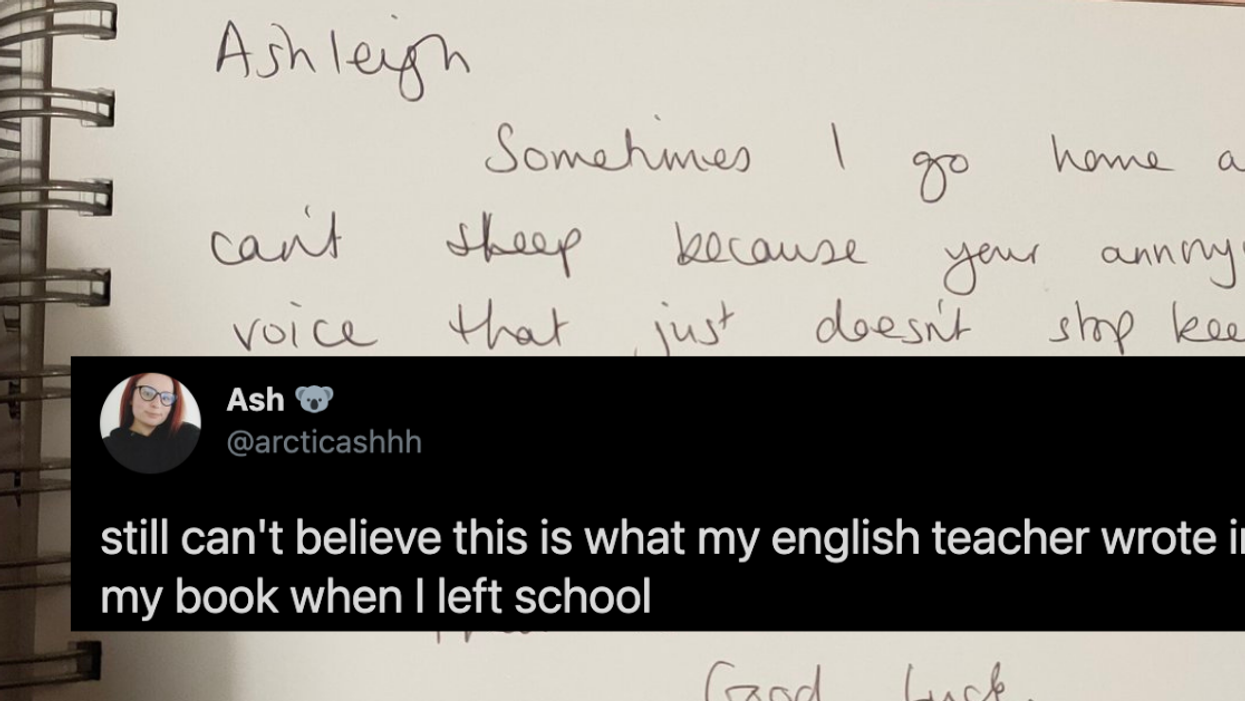 Ashleigh
Sometimes I go home a
can't sleep because your annoy
voice that just doesn't stop kee
Ash 🐨
@arcticashhh
still can't believe this is what my english teacher wrote in
my book when I left school
Good luck.